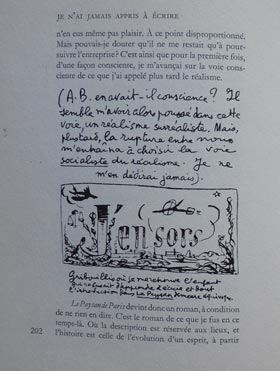 JE N'AI JAMAIS APPRIS À ÉCRIRE
n'en eus même pas plaisir. À ce point disproportionné.
Mais pouvais-je douter qu'il ne me restait qu'à pour-
suivre l'entreprise? C'est ainsi que pour la première fois,
d'une façon consciente, je m'avançai sur la voie cons-
ciente de ce que j'ai appelé plus tard le réalisme.
(A.B. en avait-il conscience? Il
semble m'avoir alors poussé dans cette
voie, un réalisme surréaliste. Mais,
plus tard, la rupture entre nous
m'entraîna à choisir la voie
socialiste du réalisme. Je ne
m'en dédirai jamais).
J'en sors
Gribouillis où je
l'enfant
qui refusait d'apprendre à écrire et dont
l'introduction dans Le Paysan demeure équivoque.
Le Paysan de Paris devint donc un roman, à condition
de ne rien en dire. C'est le roman de ce que je fus en ce
temps-là. Où la description est réservée aux lieux, et
202
l'histoire est celle de l'évolution d'un esprit, à partir